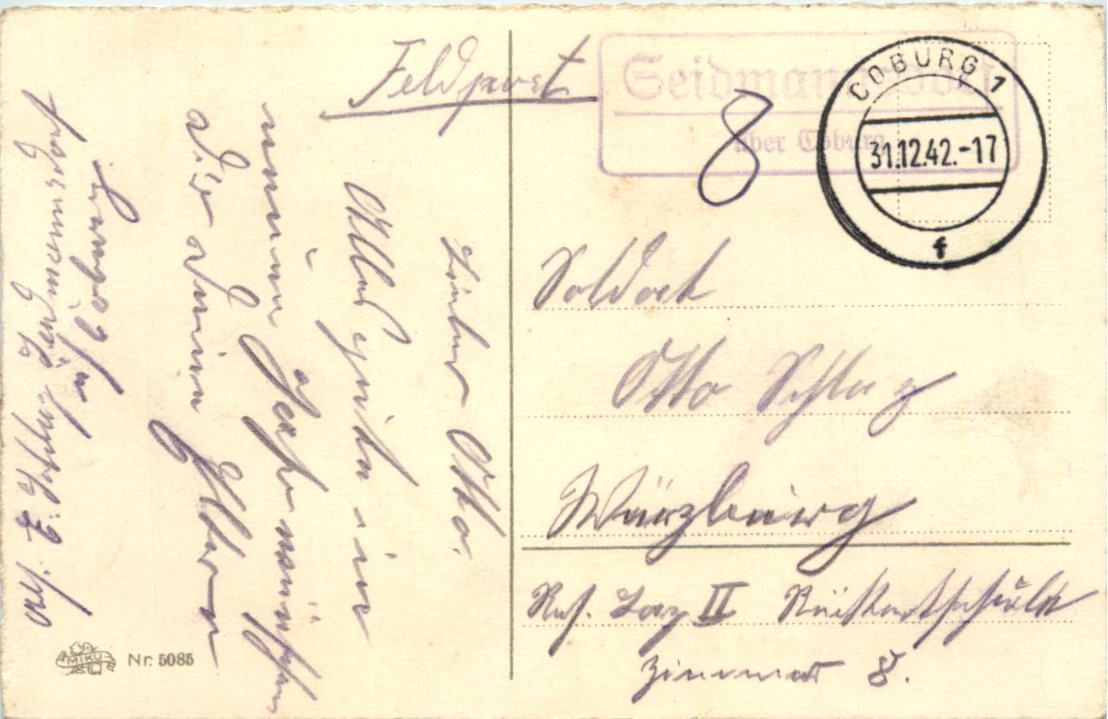 Feldpost
Seidmannsdorf
über Coburg
COBURG 1
31.12.42.-17
f
8
Lieber Otto.
Alles gute im
neuen Jahr wünschen
Dir Deine Eltern
Abs. E. Schlug Seidmannsdorf
Coburg
Soldat
Otto Schlug
Würzburg
Res. Laz II
Zimmer 8.
MIKU
Nr. 5085